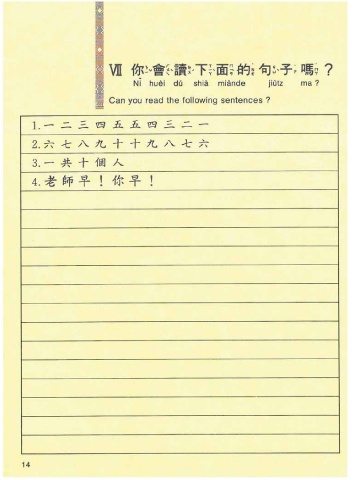 Ⅶ 你會讀下面的句子嗎？
Nǐ huèi dú shià miànde jiùtz ma?
Can you read the following sentences ?
1.一二三四五五四三二一
2.六七八九十十九八七六
3.一共十個人
4.老師早！你早！
14